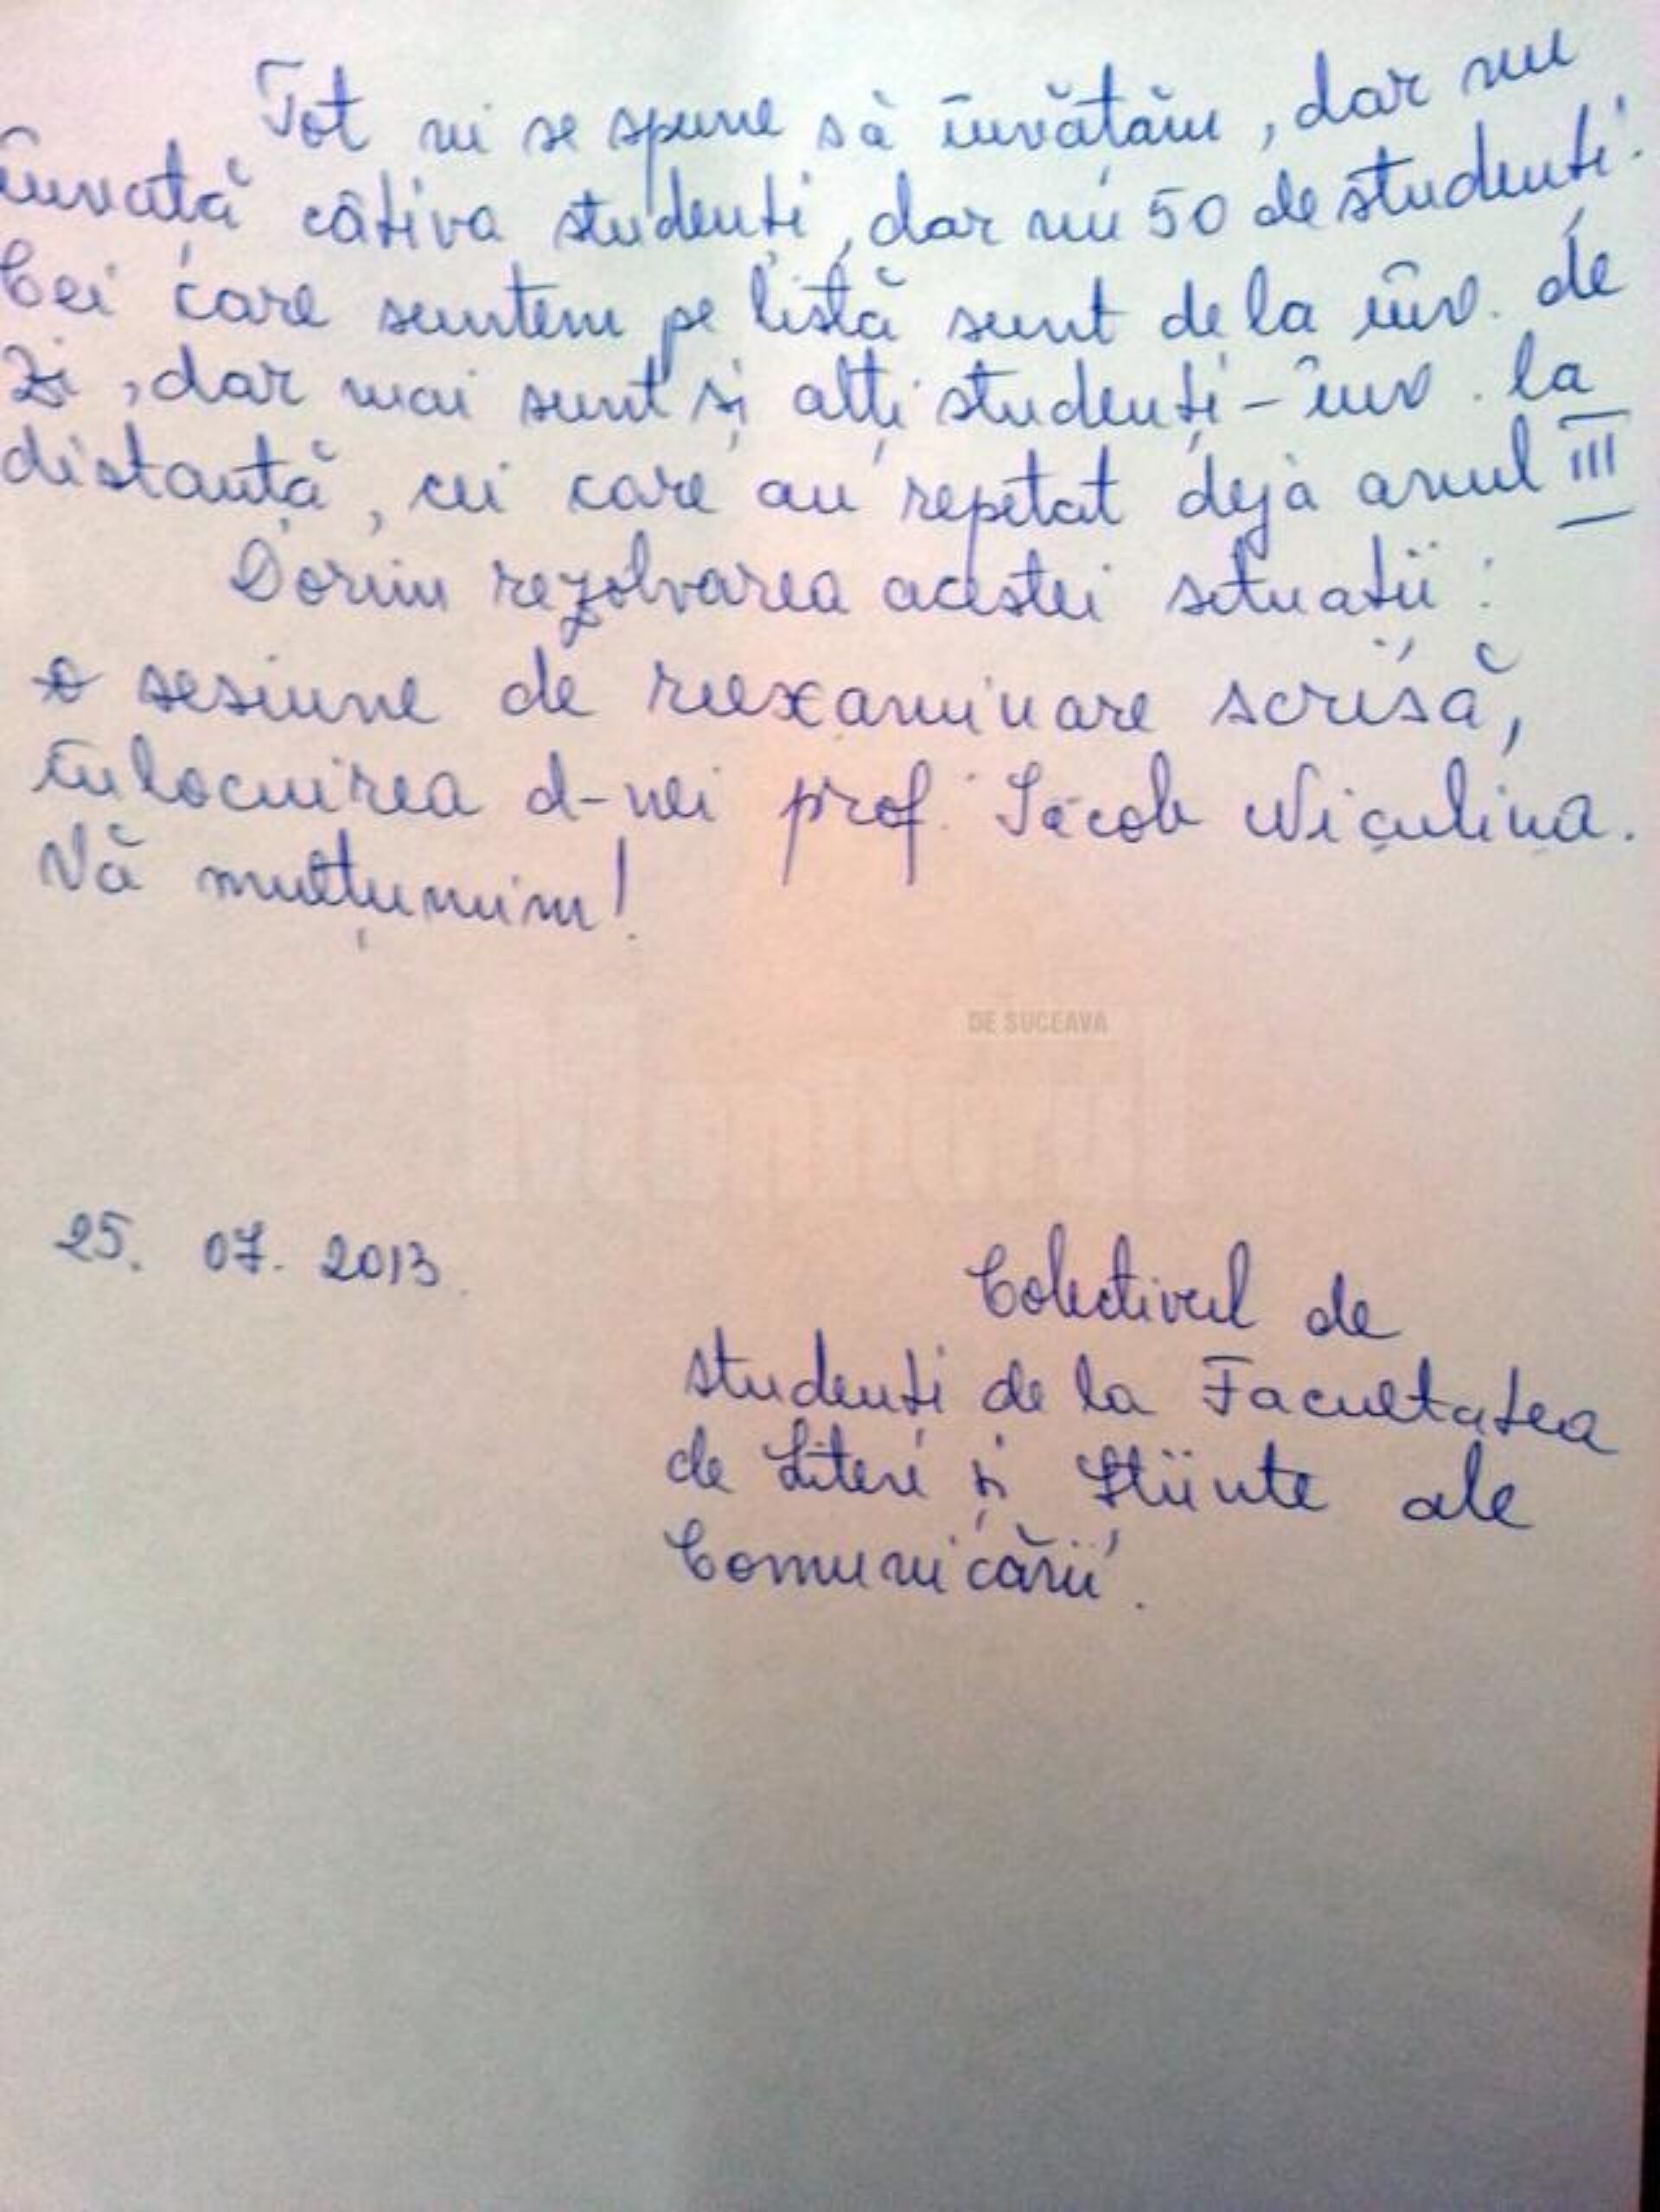 Tot ni se spune să învățăm, dar nu
învață câțiva studenți, dar nu 50 de studenți.
Cei care suntem pe listă sunt de la înv. de
Zi, dar mai sunt și alți studenți - înv. la
distanță, cei care au repetat deja anul III
Dorim rezolvarea acestei situații:
o sesiune de reexaminare scrisă,
înlocuirea d-nei prof. Iacob Niculina.
Vă mulțumim!
DE SUCEAVA
Monitorul
25. 07. 2013.
Colectivul de
studenți de la Facultatea
de Litere și Științe ale
Comunicării.